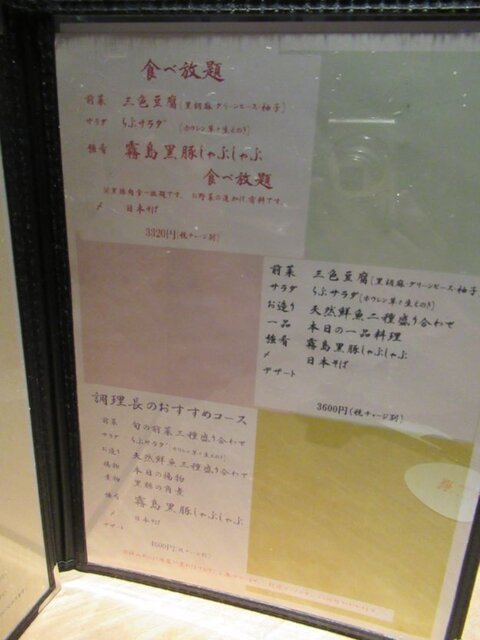 食べ放題
前菜 三色豆腐(黒胡麻・グリーンピース・柚子)
サラダ らぶサラダ (ホウレン草と生えのき)
強肴 霧島黒豚しゃぶしゃぶ
食べ放題
〆 日本そば
3320円(税チャージ別)
前菜 三色豆腐(黒胡麻・グリーンピース・柚子)
サラダ らぶサラダ(ホウレン草と生えのき)
お造り 天然鮮魚二種盛り合わせ
一品 本日の一品料理
強肴 霧島黒豚しゃぶしゃぶ
〆 日本そば
デザート
3600円(税チャージ別)
調理長のおすすめコース
前菜 旬の前菜三種盛り合わせ
サラダ らぶサラダ(ホウレン草と生えのき)
お造り 天然鮮魚三種盛り合わせ
揚物 本日の揚物
煮物 黒豚の角煮
強肴 霧島黒豚しゃぶしゃぶ
〆 日本そば
デザート
4600円(税チャージ別)